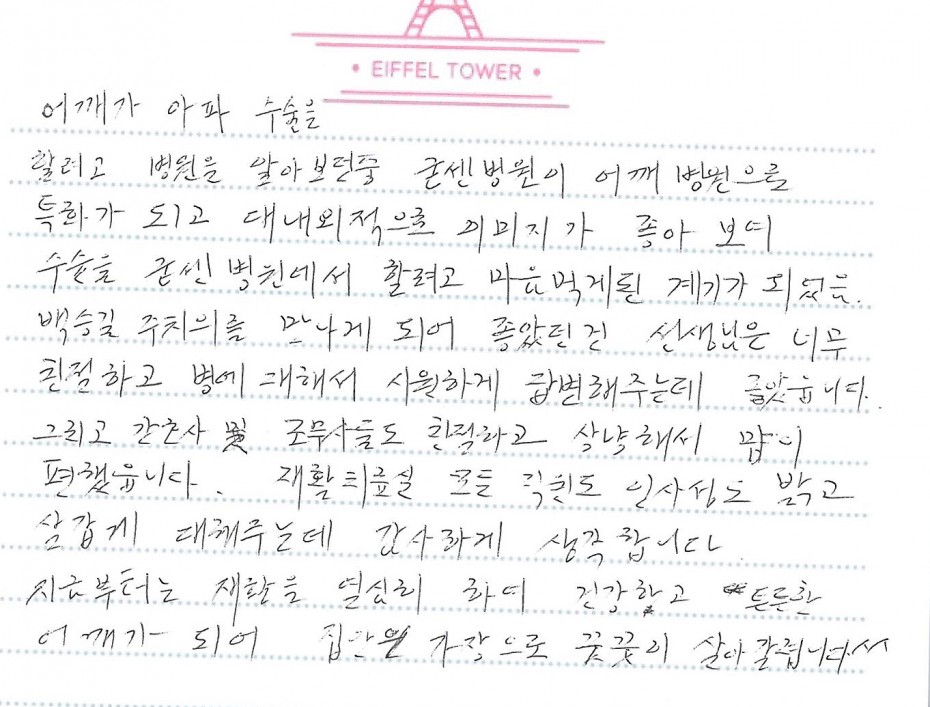 • EIFFEL TOWER •
어깨가 아파 수술을
할려고 병원을 알아보던중 굳센병원이 어깨 병원으로
특화가 되고 대내외적으로 이미지가 좋아 보여
수술을 굳센병원에서 할려고 마음먹게된 계기가 되었음.
백승길 주치의를 만나게 되어 좋았던건 선생님은 너무
친절하고 병에 대해서 시원하게 답변해주는데 좋았읍니다.
그리고 간호사 및 조무사들도 친절하고 상냥해서 많이
편했읍니다. 재활치료실 모든 직원도 인사성도 밝고
살갑게 대해주는데 감사하게 생각합니다.
지금부터는 재활을 열심히 하여 건강하고 튼튼한
어깨가 되어 집안의 가장으로 꿋꿋이 살아갈렵니다^^